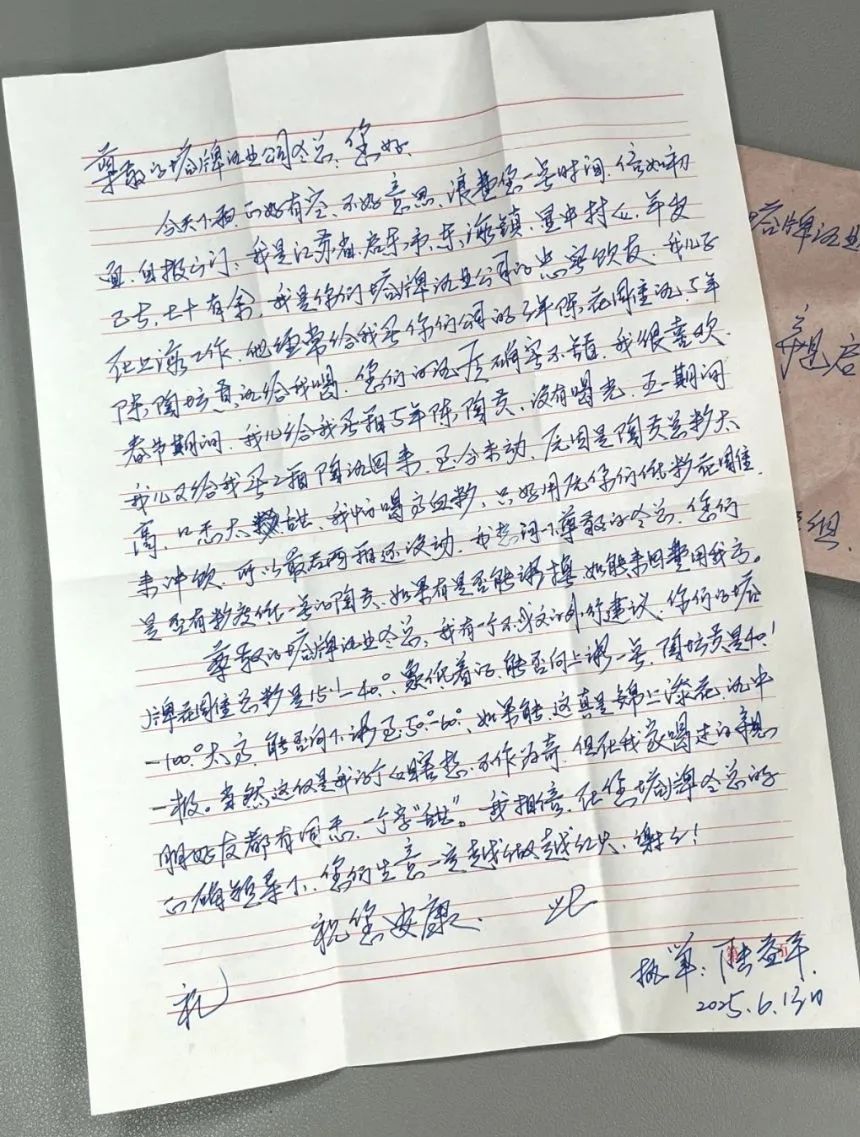 尊敬的塔牌酒业公司冬总：您好
今天下雨，正好有空，不好意思，浪费您一点时间，信如初
面，自报家门，我是江苏省启东市东海镇，村人，年岁
已古，七十有余，我是你们塔牌酒业公司的忠实饮友，我儿子
在上海工作，他经常给我买你们公司的3年陈花雕酒，5年
陈陶坛贡酒给我喝，您们的酒质确实不错，我很喜欢，
春节期间，我儿给我买箱5年陈陶贡，没有喝光，五一期间
我儿又给我买2箱陶酒回来，至今未动，原因是陶贡总糖太
高，口感太甜，我怕喝高血糖，只好用您你们低糖花雕
来冲饮，所以最后两箱还没动，我想问下尊敬的冬总，您们
是否有糖度低一点的陶贡，如果有是否能调换，如能来回费用我方。
尊敬的塔牌酒业冬总，我有一个不成文的外行建议，你们的塔
牌花雕总糖是15.1—40.°，能否向上调一点，陶坛贡是40.1
—100.°太高，能否向下调至50.°—60.°，如果能，这真是锦上添花，酒中
一极。当然这仅是我的个人瞎想，不作为奇，但在我家喝过的亲戚
朋好友都有同感，一个字“甜”。我相信，在您塔牌冬总的
正确领导下，您们生意一定越做越红火，谢谢！
祝您安康 此
礼
执笔：陆益平
2025.6.13日
塔牌酒业
亲启
组